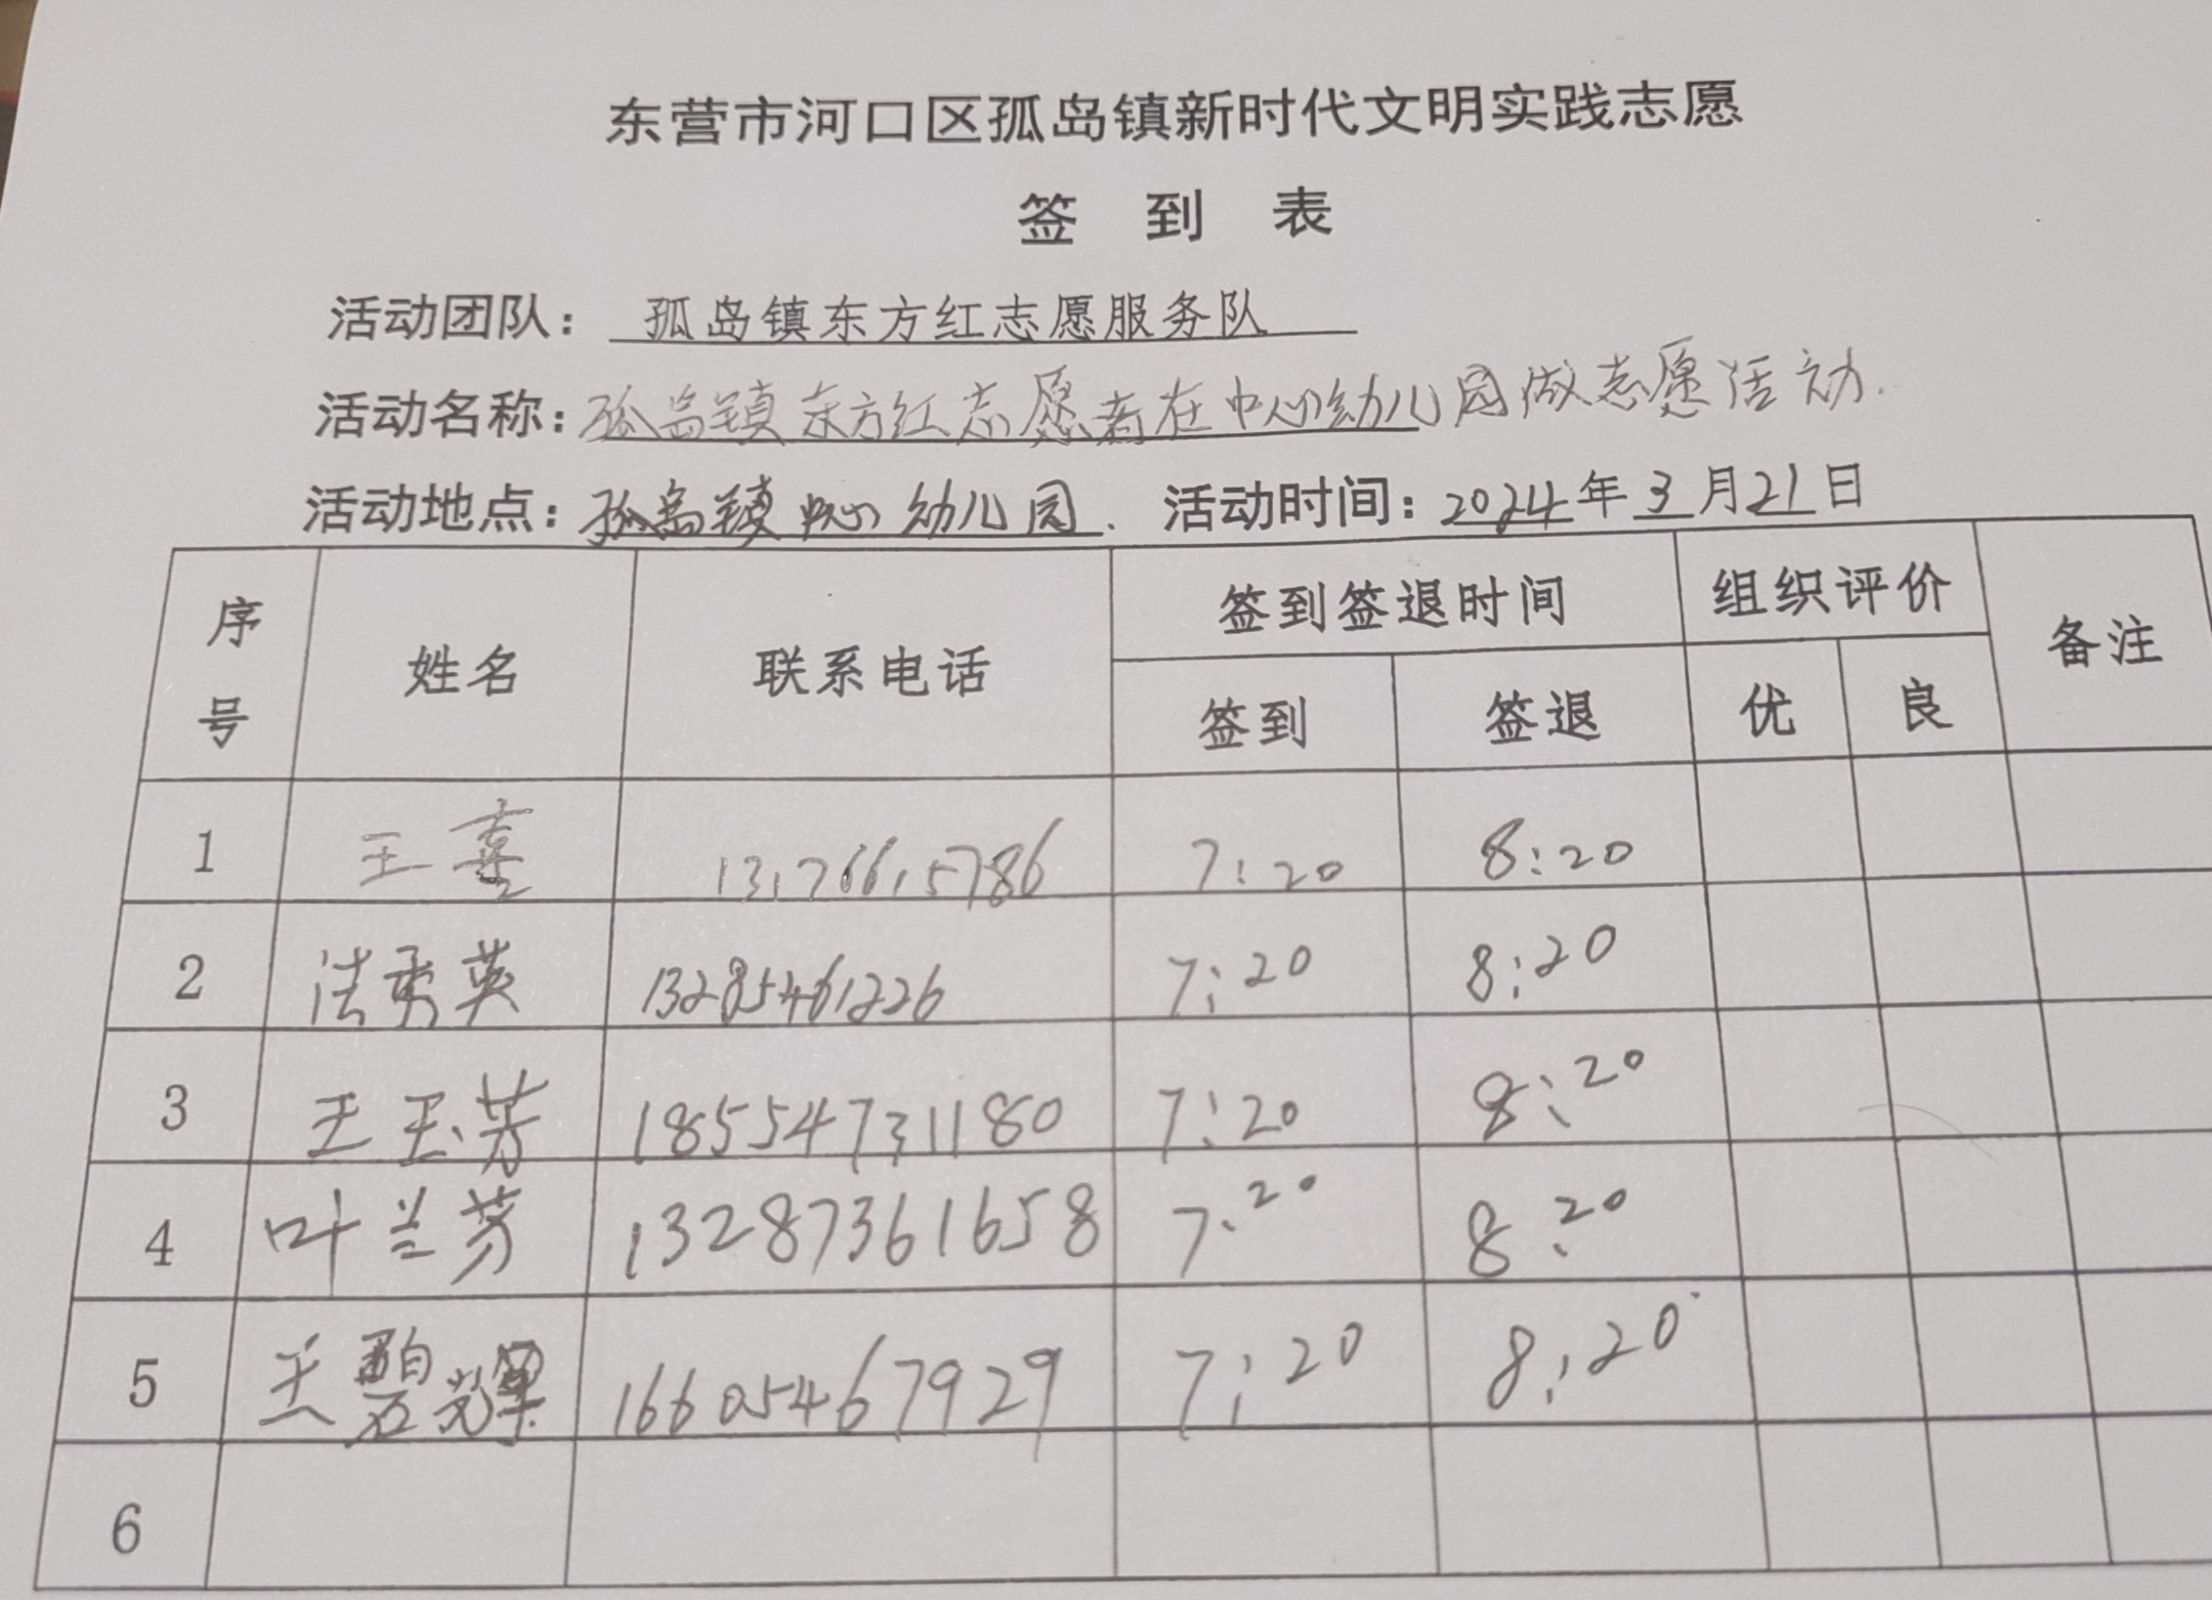 东营市河口区孤岛镇新时代文明实践志愿
签 到 表
活动团队： 孤岛镇东方红志愿服务队
活动名称：孤岛镇东方红志愿者在中心幼儿园做志愿活动.
活动地点：孤岛镇中心幼儿园. 活动时间：2024年3月21日
序号 姓名 联系电话 签到签退时间 组织评价 备注
签到 签退 优 良
1 王喜 13176615786 7:20 8:20
2 法秀英 13285461226 7:20 8:20
3 王玉芳 18554731180 7:20 8:20
4 叶兰芳 13287361658 7:20 8:20
5 王碧辉 16605467929 7:20 8:20
6